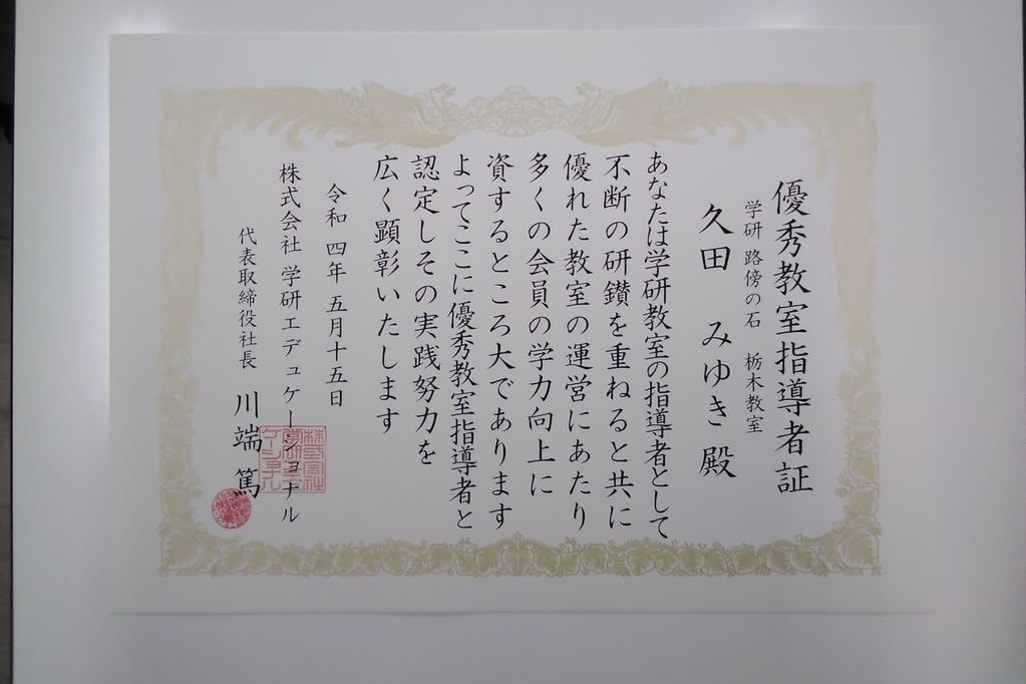 優秀教室指導者証
学研 路傍の石 栃木教室
久田 みゆき 殿
あなたは学研教室の指導者として
不断の研鑚を重ねると共に
優れた教室の運営にあたり
多くの会員の学力向上に
資するところ大であります
よってここに優秀教室指導者と
認定しその実践努力を
広く顕彰いたします
令和 四年 五月十五日
株式会社 学研エデュケーショナル
代表取締役社長 川端 篤